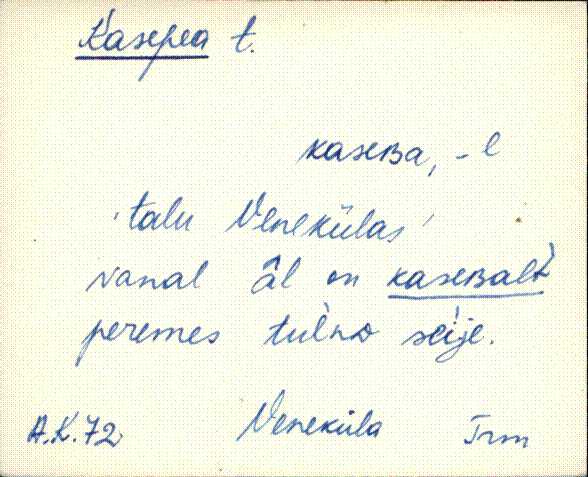 Kasepea t.
kaseʙa, -l
'talu Venekülas'
vanal âl on kaseʙalt̀
peremes tuĺnᴅ seije.
A.K.72. Veneküla Trm